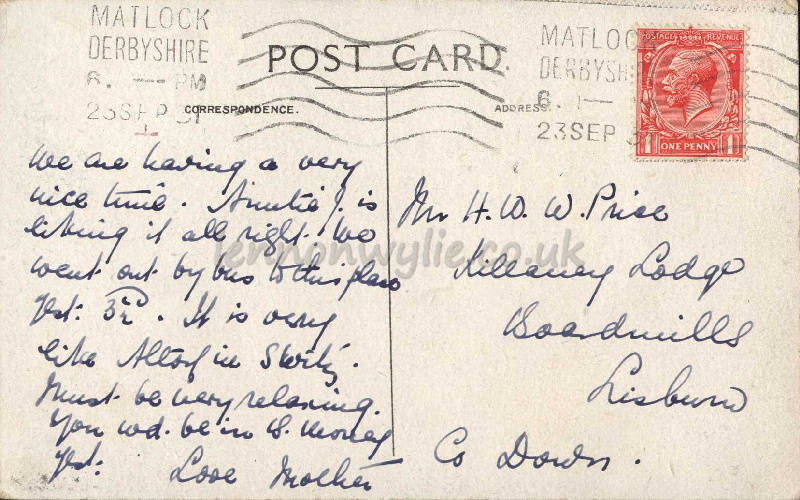 MATLOCK
DERBYSHIRE
6. — PM
23 SEP 31
POST CARD.
MATLOCK
DERBYSHI
6. 1—
23 SEP 3
POSTAGE REVENUE
1 ONE PENNY 1
CORRESPONDENCE.
ADDRESS
We are having a very
nice time. Auntie J. is
liking it all right. We
went out by bus to this place
yst: It is very
like Altorf in Switz.
Must be very relaxing.
You wd. be in
yst:
Love Mother
Mr H. W. W. Price
Killaney Lodge
Boardmills
Lisburn
Co Down.
lennonwylie.co.uk